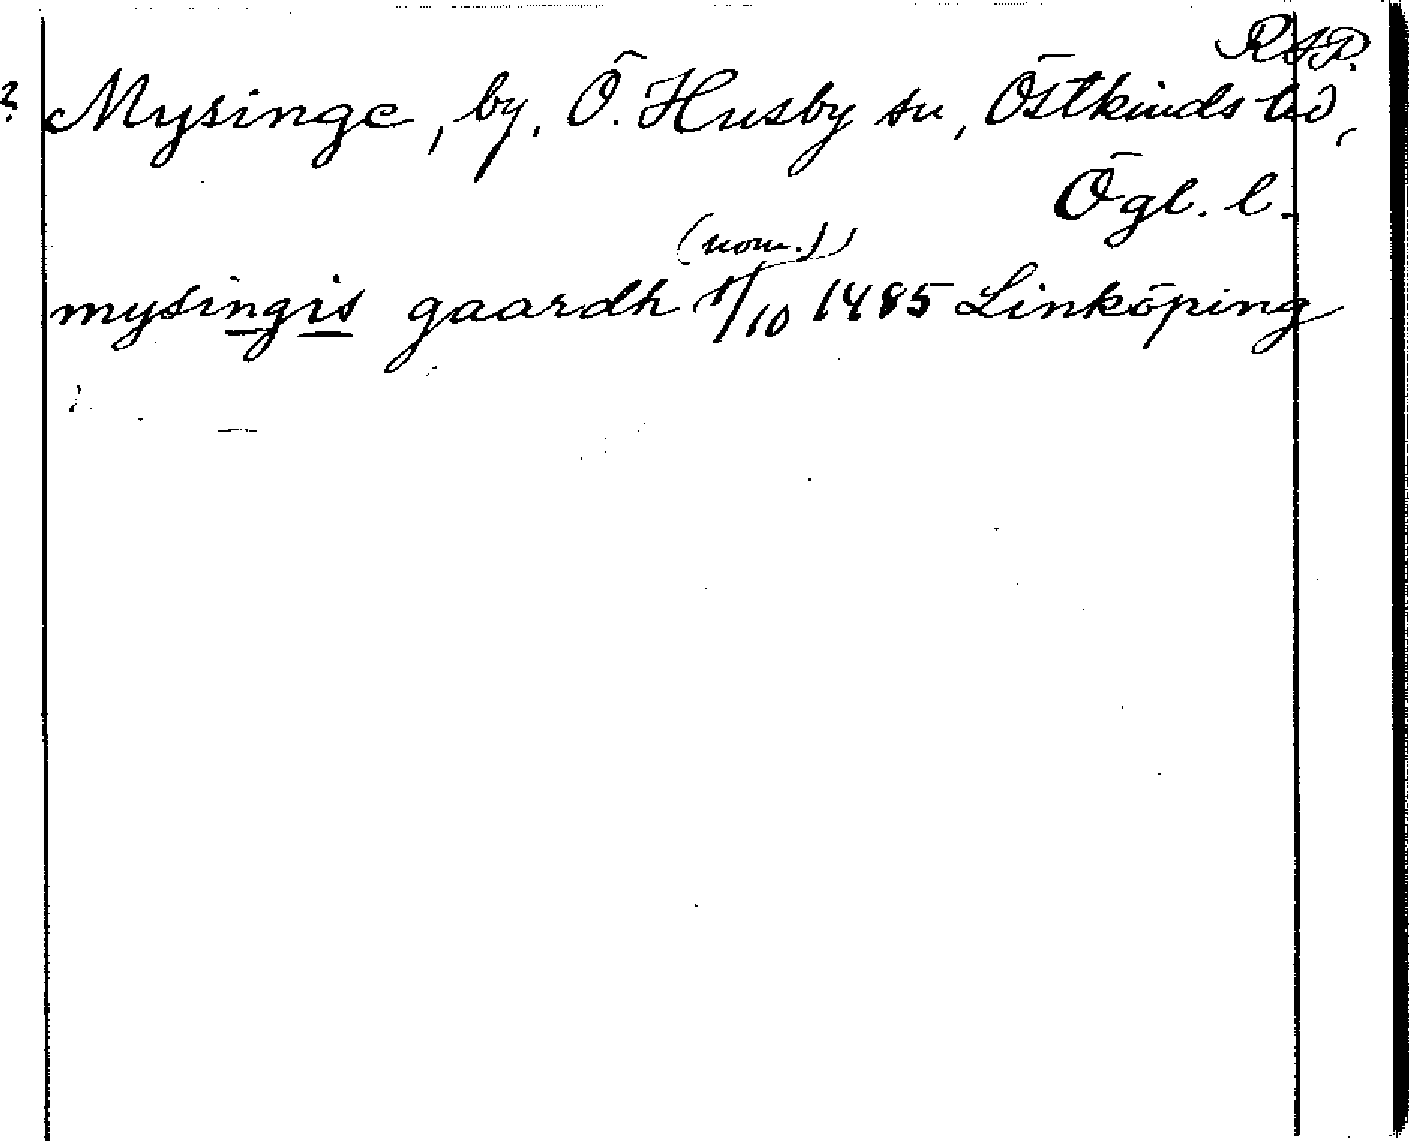 R.A.P.
? Mysinge, by, Ö. Husby sn, Östkinds hd,
Ögl. l.
(nom.)
mysingis gaardh 1/10 1485 Linköping